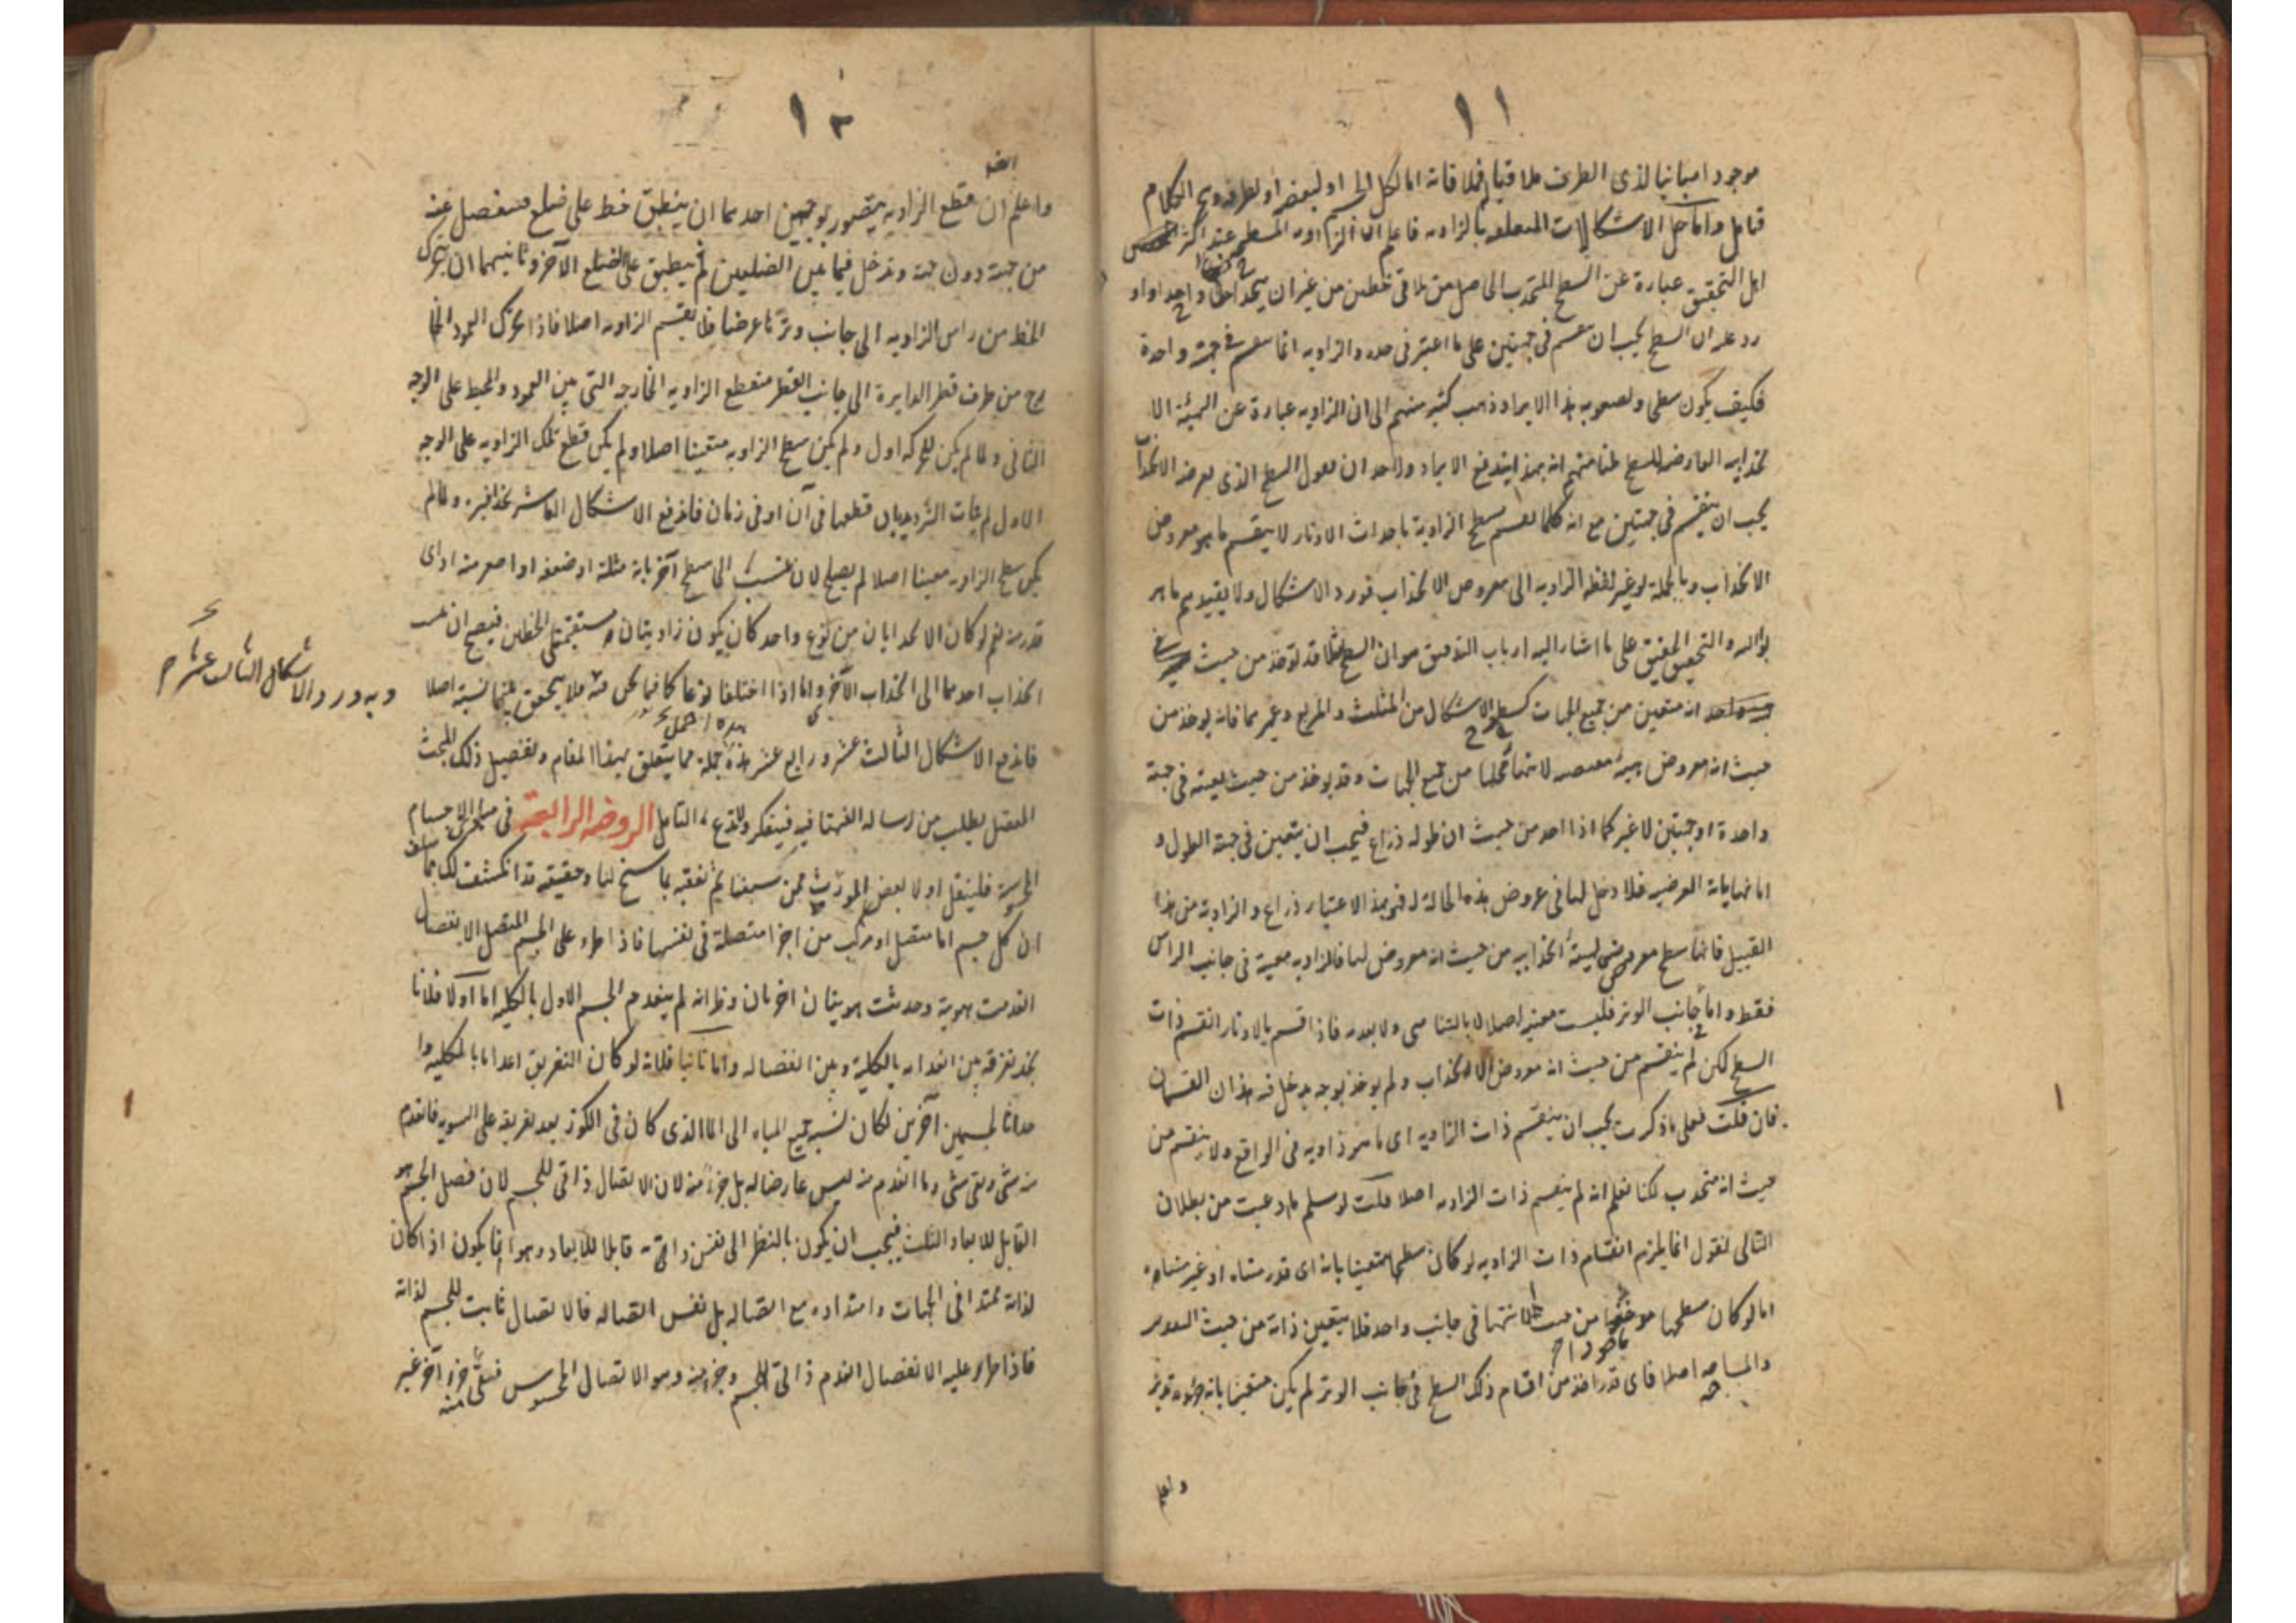 ١١
موجود امباينا لذى الطرف ملاقيا فملاقاته اما لكل الجسم او لبعضه او لطرفه ويتم الكلام
فتامل واما حل الاشكالات المتعلقه بالزاويه فاعلم ان الزاويه المسطحه عند اكثر
اهل التحقيق عبارة عن السطح المتحدب الحاصل من تلاقى خطين من غير ان يتحدا خطا واحدا و
رد عليه ان السطح يجب ان ينقسم فى جهتين على ما اعتبر فى حده والزاويه انما ينقسم فى جهة واحدة
فكيف يكون سطحا ولصعوبه هذا الايراد ذهب كثير منهم الى ان الزاويه عبارة عن الهيئة الا
نحدابيه العارضه للسطح ظنا منهم انه بهذا يندفع الايراد ولاحد ان يقول السطح الذى يعرضه الانحداب
يجب ان ينقسم فى جهتين مع انه كلما يقسم سطح الزاوية باحداث الاوتار لا ينقسم ما هو معروض
الانحداب وبالجملة لو غير لفظه الزاويه الى معروض الانحداب فورد الاشكال ولا يفيدهم ما هر
بوا اليه والتحقيق الحقيق على ما اشار اليه ارباب التدقيق هو ان السطح قد يوخذ من حيث
انه متعين من جميع الجهات كسطح الاشكال من المثلث والمربع وغيرهما فانه يوخذ من
حيث انه معروض هيئة مقتضيه لانتهاء محلها من جميع الجهات وقد يوخذ من حيث تعينه فى جهة
واحدة او جهتين لا غير كما اذا اخذ من حيث ان طوله ذراع فيجب ان يتعين فى جهة الطول و
اما نهاياته العرضيه فلا دخل لها فى عروض هذه الحالة له فهو بهذا الاعتبار ذراع والزاوية من هذا
القبيل فانها سطح معروض لهيئة انحدابيه من حيث انه معروض لها فالزاويه معينة فى جانب الراس
فقط واما جانب الوتر فليست معينه اصلا لا بالتناهى ولا بعدمه فاذا قسم بالاوتار انقسم ذات
السطح لكن لم ينقسم من حيث انه معروض الانحداب ولم يوخذ بوجه يدخل فيه هذان القسمان
فان قلت فعلى ما ذكرت يجب ان ينقسم ذات الزاويه اى ما هو زاويه فى الواقع ولا ينقسم من
حيث انه متحدب لكنا نعلم انه لم ينقسم ذات الزاويه اصلا قلت لو سلم ما ادعيت من بطلان
التالى نقول انما يلزم انقسام ذات الزاويه لو كان سطحها متعينا بانه اى قدر متناه او غير متناه
اما لو كان سطحها ماخوذا من حيث الانتها فى جانب واحد فلا يتعين ذاته من حيث التقدير
والمساحه اصلا فاى قدر اخذ من اقسام ذلك السطح فى جانب الوتر لم يكن متعينا بانه جزء
واعلم
١٢
واعلم ان قطع الزاويه يتصور بوجهين احدهما ان ينطبق خط على ضلع فينفصل عنه
من جهة دون جهة ويدخل فيما بين الضلعين ثم ينطبق على الضلع الآخر وثانيهما ان يتحرك
الخط من راس الزاويه الى جانب وترها عرضا فلا يقسم الزاويه اصلا فاذا تحرك العمود الخا
رج من طرف قطر الدايرة الى جانب القطر فتقطع الزاويه الخارجه التى بين العمود والمحيط على الوجه
الثانى ولما لم يكن للحركه اول ولم يكن سطح الزاويه متعينا اصلا ولم يكن قطع تلك الزاويه على الوجه
الاول لم يتات الترديد بان قطعها فى آن او فى زمان فاندفع الاشكال العاشر بحذافيره ولما لم
يكن سطح الزاويه معينا اصلا لم يصلح لان ينسب الى سطح آخر بانه مثله او ضعفه او اصغر منه او اى
قدر منه نعم لو كان الانحدابان من نوع واحد كان يكون زاويتان مستقيمتى الخطين فيصح ان
انحداب احدهما الى انحداب الآخر واما اذا اختلفا نوعا كما فيما نحن فيه فلا يتحقق بينهما نسبة اصلا
وبه ورد الاشكال الثالث عشر
فاندفع الاشكال الثالث عشر ورابع عشر هذه جملة مما يتعلق بهذا المقام وتفصيل ذلك المبحث
المعضل يطلب من رساله الفتها فيه فيتفكر ولا تدع التامل الروضه الرابعة فى الاجسام
الحسية فلينقل اولا بعض ممن سبقنا ثم نعقبه بما سنح لنا وحقيقه قد انكشفت لك مما سلف
ان كل جسم اما متصل او مركب من اجزا متصلة فى نفسها فاذا طرء على الجسم المتصل الانفصال
انعدمت هوية وحدثت هويتان اخريان وظ انه لم ينعدم الجسم الاول بالكليه اما اولا فلانا
نجد تفرقه بين انعدامه بالكلية وبين انفصاله واما ثانيا فلانه لو كان التفريق اعداما بالكليه وا
حداثا لجسمين آخرين لكان نسبة جميع المياه الى الما الذى كان فى الكوز بعد تفريقه على السويه فانعدم
منه شى وبقى شى وما انعدم منه ليس عارضا له بل جزء منه لان الاتصال ذاتى للجسم لان فصل الجسم هو
القابل للابعاد الثلث فيجب ان يكون بالنظر الى نفس ذاته قابلا للابعاد وهو انما يكون اذا كان
لذاته ممتدا فى الجهات وامتداده مع اتصاله بل نفس اتصاله فالاتصال ثابت للجسم لذاته
فاذا طرء عليه الانفصال انعدم ذاتى للجسم وجزء منه وهو الاتصال المحسوس فبقى جزء آخر غير